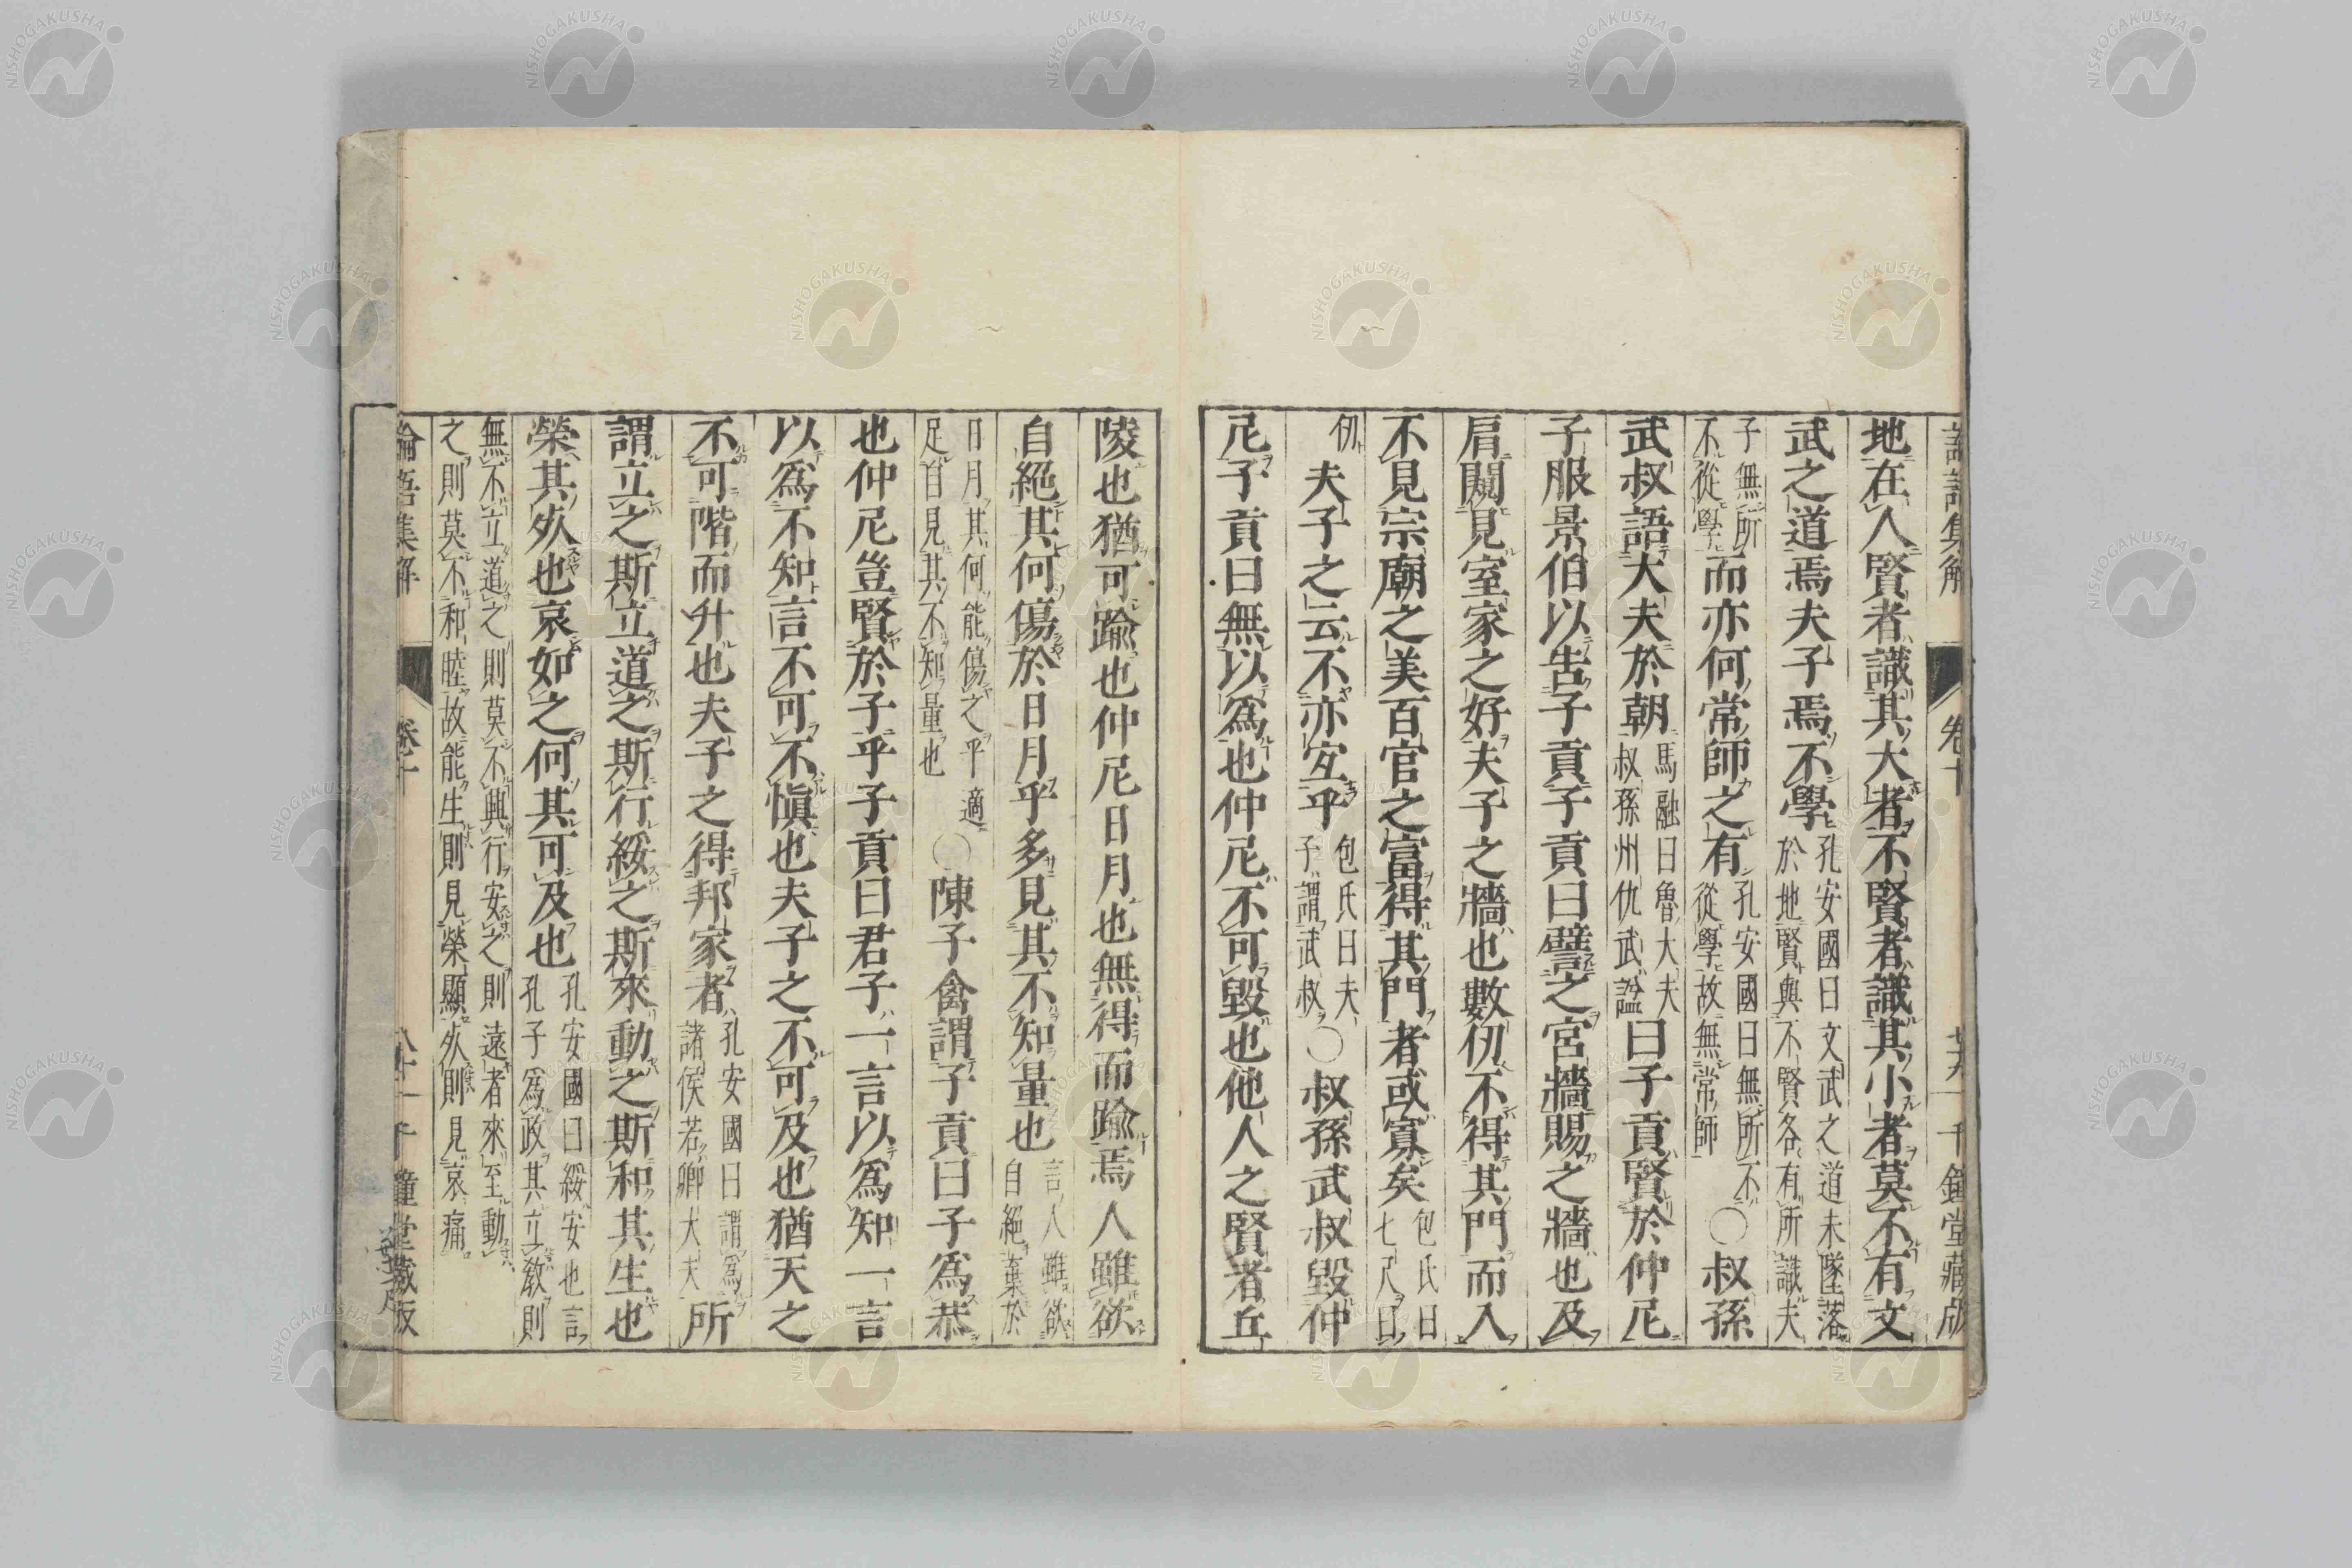 地在人賢者識其大者不賢者識其小者莫不有文
武之道焉夫子焉不學孔安國曰文武之道未墜落於地賢與不賢各有所識夫
子無所不從學而亦何常師之有孔安國曰無所不從學故無常師〇叔孫
武叔語大夫於朝馬融曰魯大夫叔孫州仇武謚曰子貢賢於仲尼
子服景伯以告子貢子貢曰譬之宮牆賜之牆也及
肩闚見室家之好夫子之牆也數仞不得其門而入
不見宗廟之美百官之富得其門者或寡矣包氏曰七尺曰
仞夫子之云不亦宜乎包氏曰夫子謂武叔〇叔孫武叔毀仲
尼子貢曰無以爲也仲尼不可毀也他人之賢者丘
陵也猶可踰也仲尼日月也無得而踰焉人雖欲
自絕其何傷於日月乎多見其不知量也言人雖欲自絕棄於
日月其何能傷之乎適足自見其不知量也〇陳子禽謂子貢曰子爲恭
也仲尼豈賢於子乎子貢曰君子一言以爲知一言
以爲不知言不可不愼也夫子之不可及也猶天之
不可階而升也夫子之得邦家者孔安國曰謂爲諸侯若卿大夫所
謂立之斯立道之斯行綏之斯來動之斯和其生也
榮其死也哀如之何其可及也孔安國曰綏安也言孔子爲政其立教則
無不立道之則莫不興行安之則遠者來至動之則莫不和睦故能生則見榮顯死則見哀痛
論語集解 卷十 千鐘堂藏版